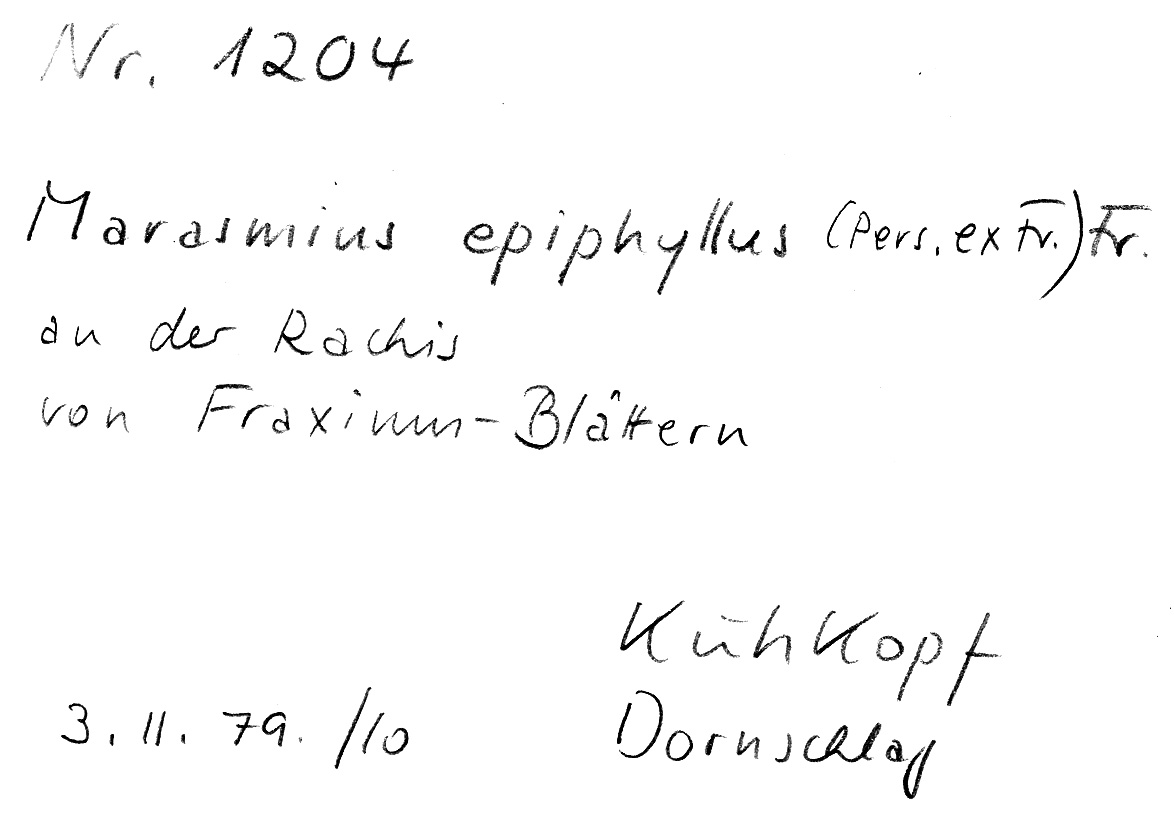 Nr. 1204
Marasmius epiphyllus (Pers. ex Fr.) Fr.
an der Rachis
von Fraxinus-Blättern
Kühkopf
3. 11. 79. /10 Dornschlag